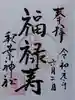 奉拝
令和元年
六月二日
福禄寿
神社